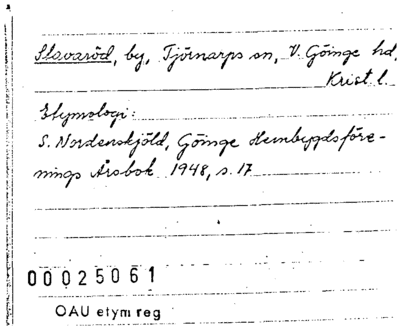 Slavaröd, by, Tjörnarps sn, V. Göinge hd,
Krist. l.
Etymologi:
S. Nordenskjöld, Göinge Hembygdsföre-
nings Årsbok 1948, s. 17
00025061
OAU etym reg